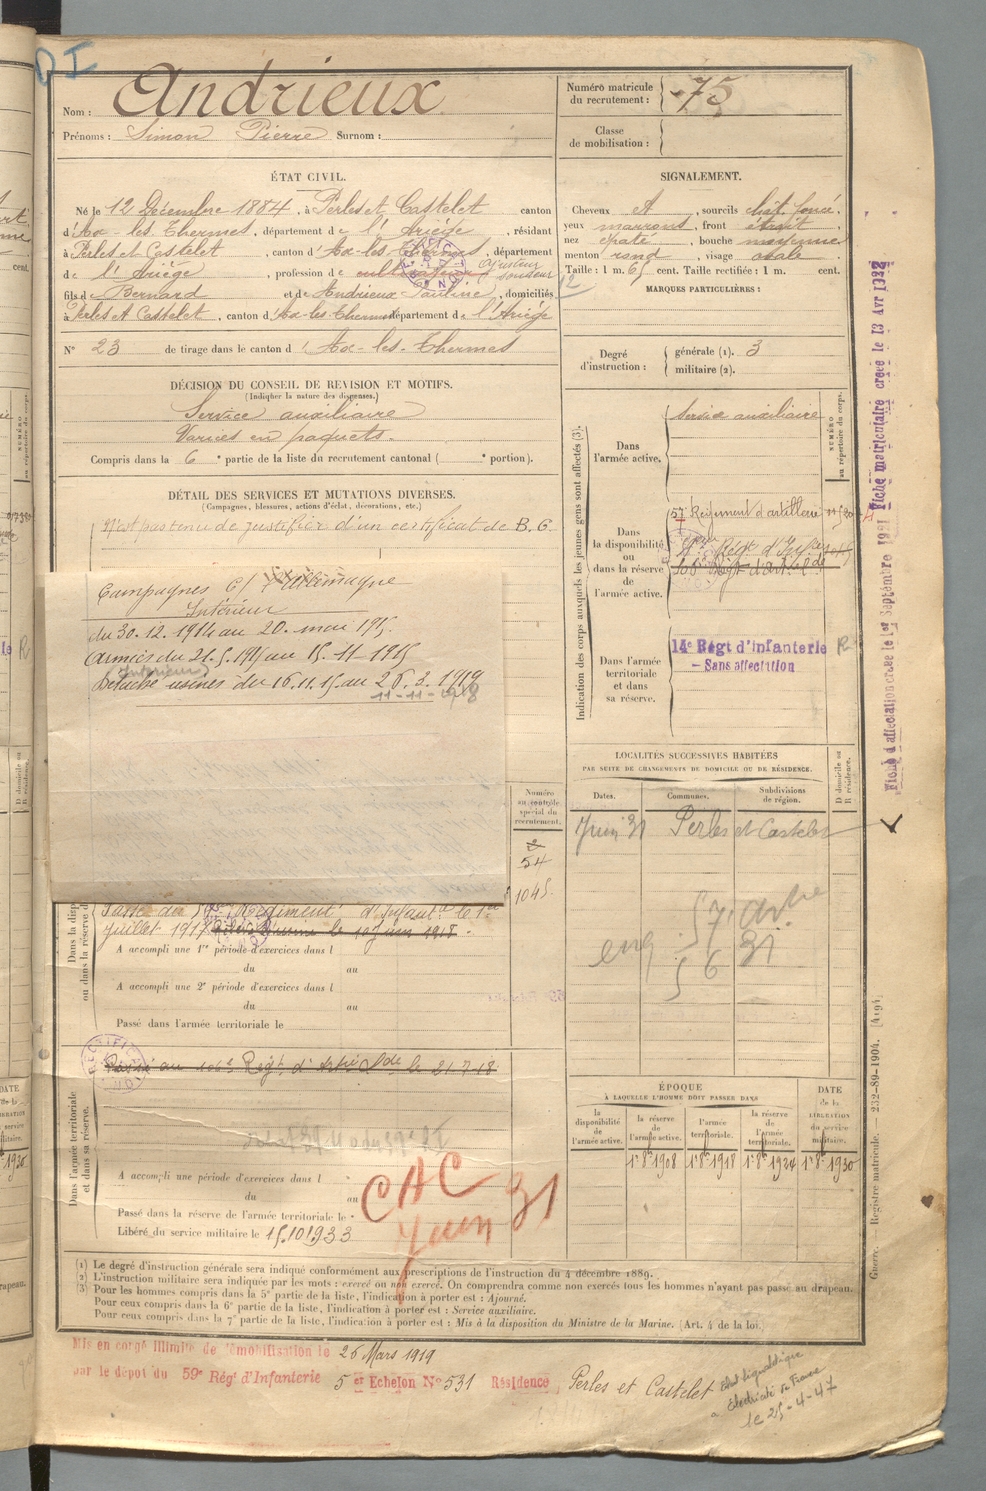 DI
Nom : Andrieux
Prénoms : Simon Pierre Surnom :
Numéro matricule du recrutement : 75
Classe de mobilisation :
ÉTAT CIVIL.
Né le 12 Décembre 1884, à Perles et Castelet, canton
d'Ax-les-Thermes, département de l'Ariège, résidant
à Perles et Castelet, canton d'Ax-les-Thermes, département
de l'Ariège, profession de cultivateur Ajusteur soudeur
fils de Bernard et de Andrieux Pauline, domiciliés
à Perles et Castelet, canton d'Ax-les-Thermes département de l'Ariège
N° 23 de tirage dans le canton d'Ax-les-Thermes
SIGNALEMENT.
Cheveux et, sourcils chât. foncé,
yeux marrons, front étroit
nez épaté, bouche moyenne
menton rond, visage ovale
Taille : 1 m. 65 cent. Taille rectifiée : 1 m. cent.
12
MARQUES PARTICULIÈRES :
Degré d'instruction :
générale (1). 3
militaire (2).
DÉCISION DU CONSEIL DE REVISION ET MOTIFS.
(Indiquer la nature des dispenses.)
Service auxiliaire
Varices en paquets.
Compris dans la 6e partie de la liste du recrutement cantonal ( e portion).
DÉTAIL DES SERVICES ET MUTATIONS DIVERSES.
(Campagnes, blessures, actions d'éclat, décorations, etc.)
N'est pas tenu de justifier d'un certificat de B. C.
Campagnes C/ l'Allemagne
Intérieur
du 30.12.1914 au 20. mai 1915.
Armées du 21.5.1915 au 15-11-1915
Intérieur
Détaché usines du 16.11.15 au 26.3.1919
11-11-1918
Numéro au contrôle spécial du recrutement.
2
54
1045
Passé au 59e Régiment d'Infantie le 1er
juillet 1917
le 10 Juin 1918.
A accompli une 1re période d'exercices dans l
du au
A accompli une 2e période d'exercices dans l
du au
Passé dans l'armée territoriale le
Passé au 106e Régt. d'Artie Lde le 21-7-18
Dans l'armée territoriale et dans sa réserve.
A accompli une période d'exercices dans l
du au
Passé dans la réserve de l'armée territoriale le
Libéré du service militaire le 15.10 1933
CAC
Juin 31
Indication des corps auxquels les jeunes gens sont affectés (3).
NUMÉRO au répertoire du corps.
Dans l'armée active.
Service auxiliaire
Dans la disponibilité ou dans la réserve de l'armée active.
57e Régiment d'artillerie
59e Régt d'Infie
Dans l'armée territoriale et dans sa réserve.
14e Régt d'Infanterie
- Sans affectation
R
LOCALITÉS SUCCESSIVES HABITÉES
PAR SUITE DE CHANGEMENTS DE DOMICILE OU DE RÉSIDENCE.
Dates. Communes. Subdivisions de région. D domicile ou R résidence.
Juin 31 Perles et Castelet
57e artie
enq 5 6 31
ÉPOQUE
À LAQUELLE L'HOMME DOIT PASSER DANS
la disponibilité de l'armée active.
la réserve de l'armée active.
l'armée territoriale.
la réserve de l'armée territoriale.
DATE de la LIBÉRATION du service militaire.
1er 8bre 1908 1er 8bre 1918 1er 8bre 1924 1er 8bre 1930
(1) Le degré d'instruction générale sera indiqué conformément aux prescriptions de l'instruction du 4 décembre 1889.
(2) L'instruction militaire sera indiquée par les mots : exercé ou non exercé. On comprendra comme non exercés tous les hommes n'ayant pas passé au drapeau.
(3) Pour les hommes compris dans la 5e partie de la liste, l'indication à porter est : Ajourné.
Pour ceux compris dans la 6e partie de la liste, l'indication à porter est : Service auxiliaire.
Pour ceux compris dans la 7e partie de la liste, l'indication à porter est : Mis à la disposition du Ministre de la Marine. (Art. 4 de la loi.)
Mis en congé illimité de démobilisation le 26 Mars 1919
par le dépôt du 59e Régt d'Infanterie 5 er Echelon N° 531 Résidence Perles et Castelet
Electricité de France
le 25-4-47
Fiche d'affectation créée le 1er Septembre 1921 Fiche matriculaire créée le 13 Avr 1922
Guerre. — Registre matricule. — 232-89-1904. [4194]